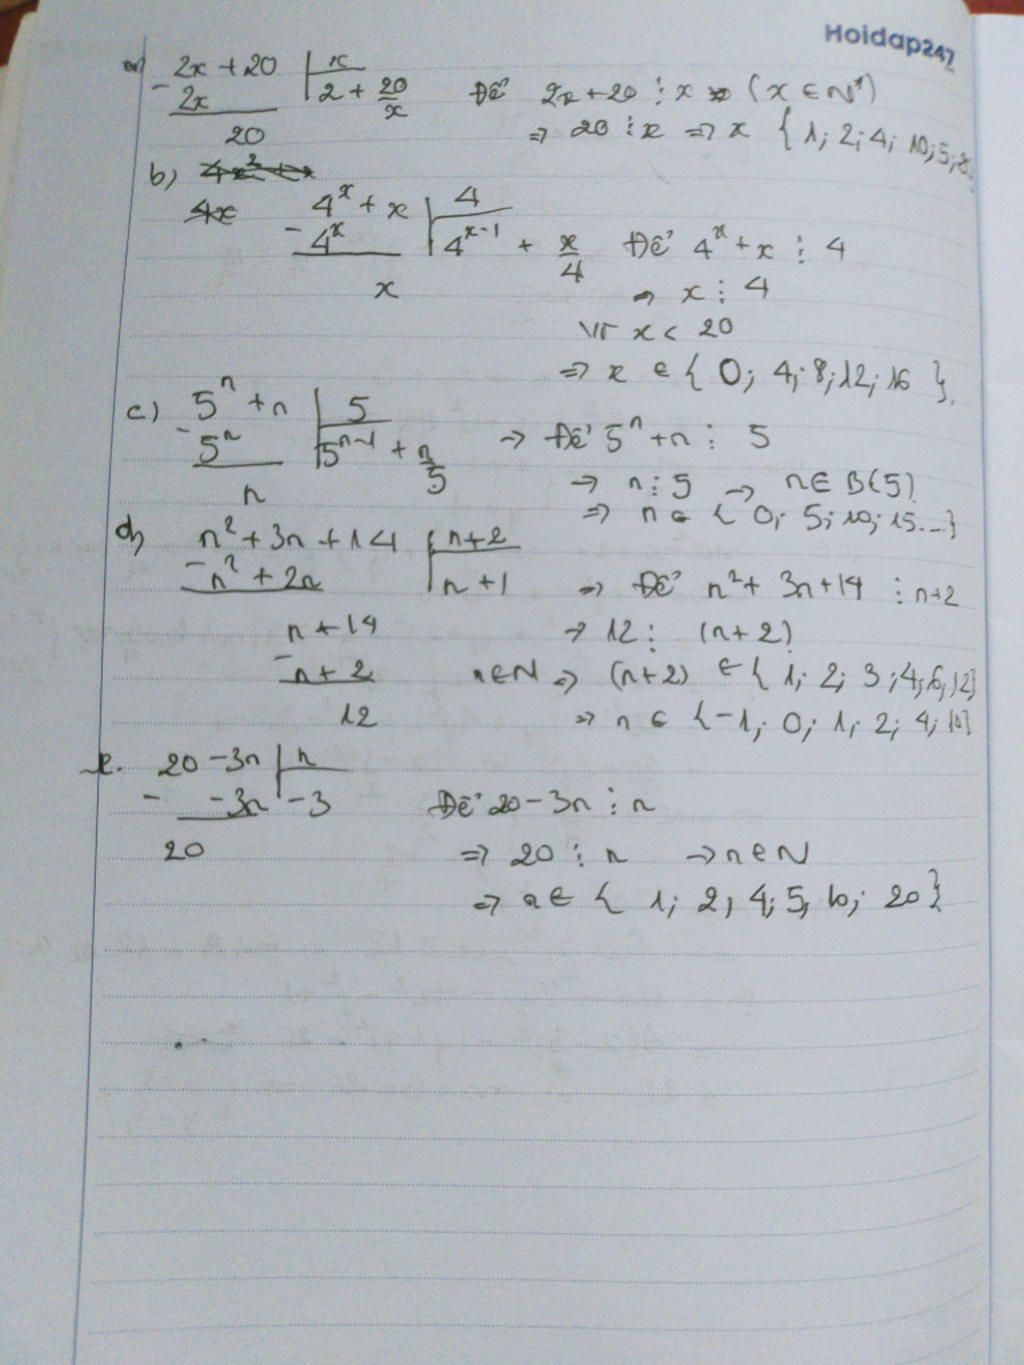 Hoidap247
a) 2x + 20 | x
- 2x | 2 + 20/x Để 2x+20 ⋮ x (x ∈ N*)
20 => 20 ⋮ x => x { 1; 2; 4; 10; 5;
b) 4x² +
4x 4^x + x | 4
- 4^x | 4^(x-1) + x/4 Để 4^x + x ⋮ 4
x => x ⋮ 4
Vì x < 20
=> x ∈ { 0; 4; 8; 12; 16 }.
c) 5^n + n | 5
- 5^n | 5^(n-1) + n/5 => Để 5^n + n ⋮ 5
n => n ⋮ 5 -> n ∈ B(5)
=> n ∈ { 0; 5; 10; 15...}
d) n² + 3n + 14 | n+2
- n² + 2n | n + 1 => Để n² + 3n + 14 ⋮ n+2
n + 14 => 12 ⋮ (n+2)
- n + 2 n∈N => (n+2) ∈ { 1; 2; 3; 4; 6; 12}
12 => n ∈ {-1; 0; 1; 2; 4; 10}
e. 20 - 3n | n
- -3n | -3 Để 20 - 3n ⋮ n
20 => 20 ⋮ n -> n ∈ N
=> n ∈ { 1; 2; 4; 5; 10; 20}